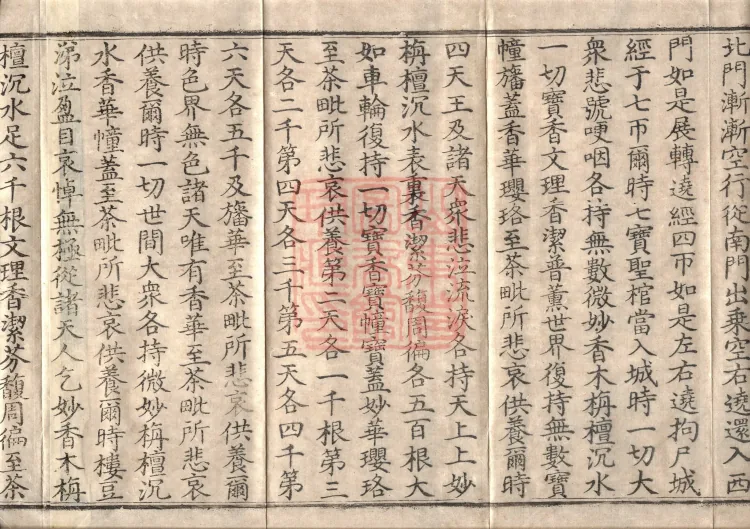 北門漸漸空行從南門出乘空右遶還入西
門如是展轉遶經四帀如是左右遶拘尸城
經于七帀爾時七寶聖棺當入城時一切大
衆悲號哽咽各持無數微妙香木栴檀沉水
一切寶香文理香潔普薰世界復持無數寶
幢旛蓋香華瓔珞至茶毗所悲哀供養爾時
四天王及諸天衆悲泣流淚各持天上上妙
栴檀沉水表裏香潔芬馥周徧各五百根大
如車輪復持一切寶香寶幢寶蓋妙華瓔珞
至茶毗所悲哀供養第二天各一千根第三
天各二千第四天各三千第五天各四千第
六天各五千及旛華至茶毗所悲哀供養爾
時色界無色諸天唯有香華至茶毗所悲哀
供養爾時一切世間大衆各持微妙栴檀沉
水香華幢蓋至茶毗所悲哀供養爾時樓豆
涕泣盈目哀悼無極從諸天人乞妙香木栴
檀沉水足六千根文理香潔芬馥周徧至茶